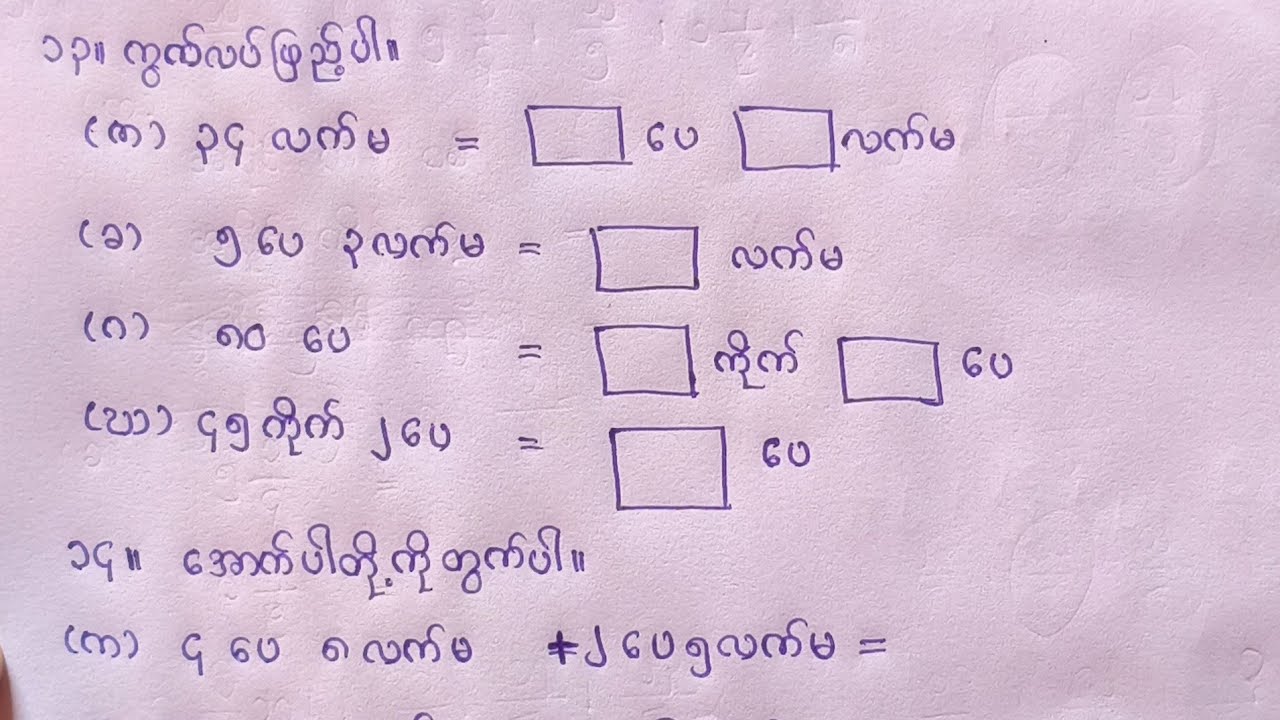 ၁၃။ ကွက်လပ်ဖြည့်ပါ။
(က) ၃၄ လက်မ = ပေ လက်မ
(ခ) ၅ ပေ ၃လက်မ = လက်မ
(ဂ) ၈၀ ပေ = ကိုက် ပေ
(ဃ) ၄၅ကိုက် ၂ပေ = ပေ
၁၄။ အောက်ပါတို့ကိုတွက်ပါ။
(က) ၄ ပေ ၈လက်မ +၂ ပေ၅လက်မ =